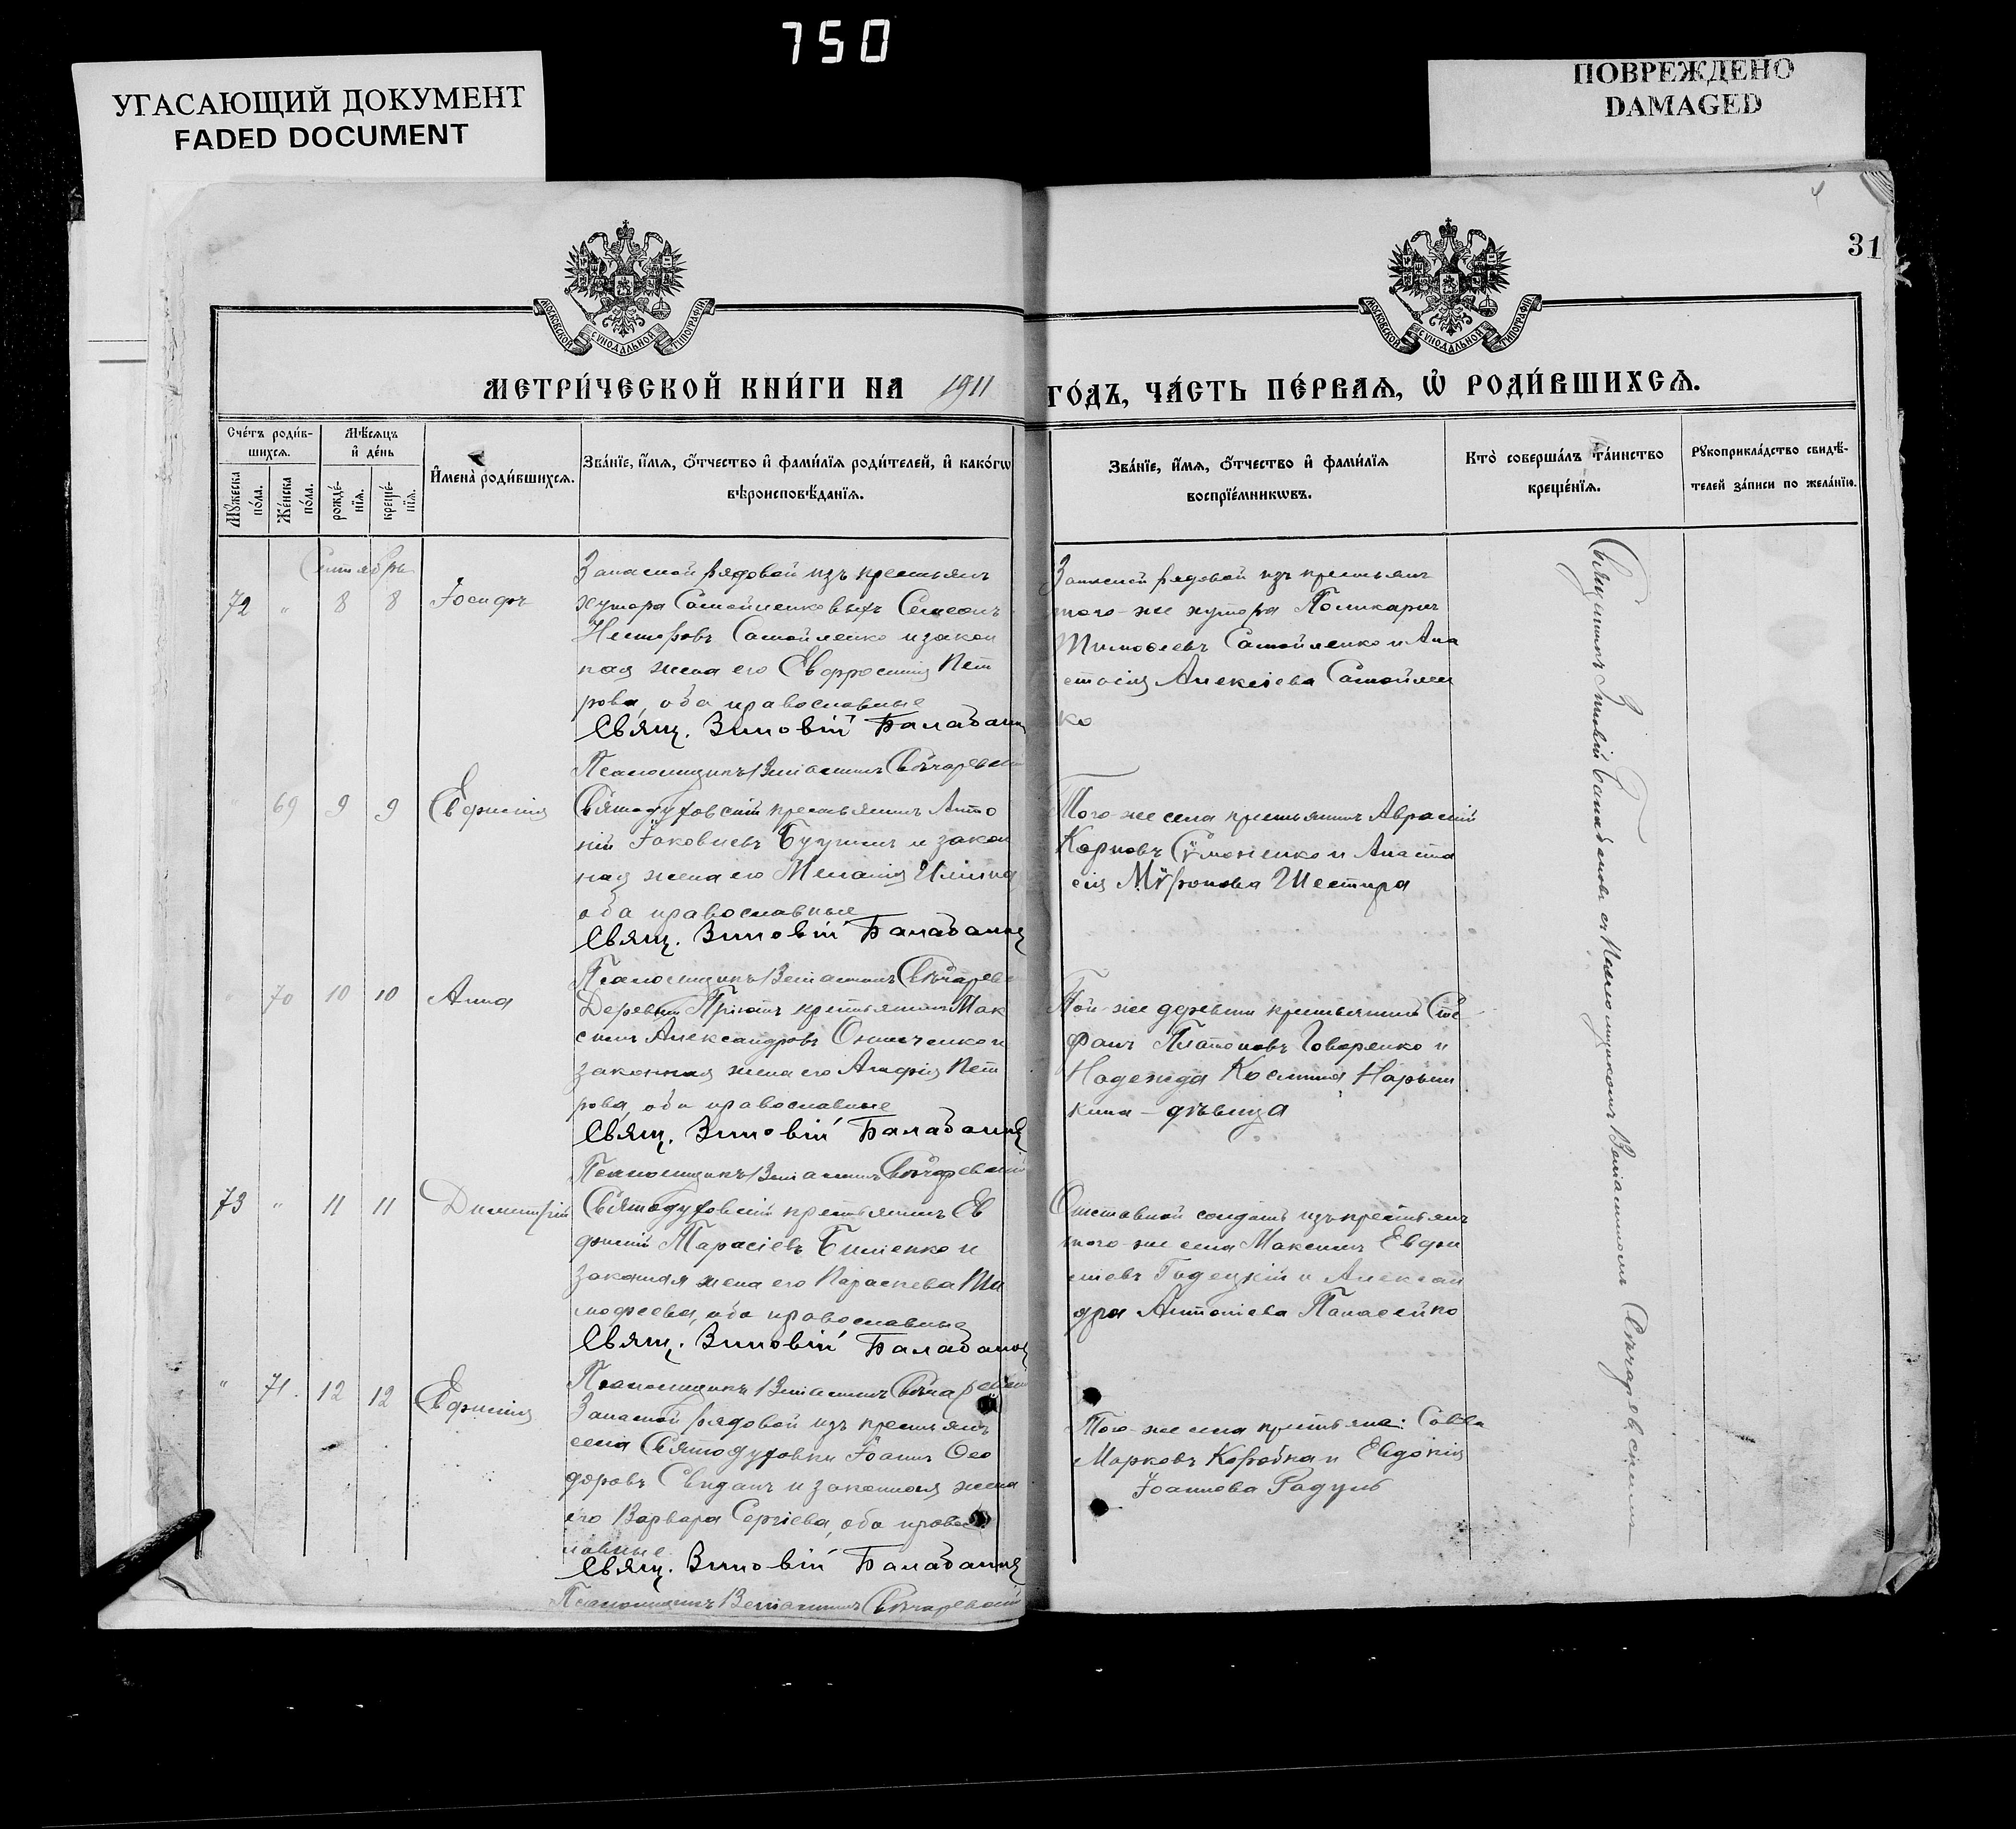 750
УГАСАЮЩИЙ ДОКУМЕНТ
FADED DOCUMENT
ПОВРЕЖДЕНО
DAMAGED
31
МОСКОВСКОЙ СѴНОДАЛЬНОЙ ТИПОГРАФІИ
МОСКОВСКОЙ СѴНОДАЛЬНОЙ ТИПОГРАФІИ
МЕТРИ́ЧЕСКОЙ КНИ́ГИ НА 1911 ГО́ДЪ, ЧА́СТЬ ПЕ́РВАѦ, Ѡ҆ РОДИ́ВШИХСѦ.
Сче́тъ роди́в-
шихсѧ.
Мꙋ́жеска
по́ла.
Же́нска
по́ла.
Мѣ́сѧцъ
и҆ де́нь
рожде́-
нїѧ.
креще́-
нїѧ.
И҆мена̀ роди́вшихсѧ.
Зва́нїе, и҆́мѧ, ѻ҆́тчество и҆ фами́лїѧ роди́телей, и҆ како́гѡ
вѣроисповѣ́данїѧ.
Зва́нїе, и҆́мѧ, ѻ҆́тчество и҆ фами́лїѧ
воспрїе́мникѡвъ.
Кто̀ соверша́лъ та́инство
креще́нїѧ.
Рꙋкоприкла́дство свидѣ́-
телей за́писи по жела́нїю.
Сентябрь
72 " 8 8 Іосифъ
Запасной рядовой изъ крестьянъ
хутора Самойленковыхъ
Несторовъ Самойленко и закон
ная жена его Евфросинія Пет
рова, оба православные
Свящ. Зиновій Балабанов
Псаломщикъ Веніаминъ Свѣчаревскій
Запасной рядовой изъ крестьянъ
того-же хутора Поликарпъ
Тимоѳеевъ Самойленко и Ана
стасія Алексіева Самойлен
ко
" 69 9 9 Евфимія
Святодуховскій крестьянинъ Анто
ній Іаковлевъ и закон
ная жена его Меланія
оба православные
Свящ. Зиновій Балабанов
Псаломщикъ Веніаминъ Свѣчарев
Того-же села крестьянинъ
Карповъ Сѵмоненко и Анаста
сія Мѵронова Шестира
" 70 10 10 Анна
Деревни крестьянинъ Мак
симъ Александровъ Онищенко и
законная жена его Агафія Пет
рова, оба православные
Свящ. Зиновій Балабанов
Псаломщикъ Веніаминъ Свѣчаревскій
Той-же деревни крестьянинъ Сте
фанъ Платоновъ Говоренко и
Надежда Космина Нарыш
кина - дѣвица
73 " 11 11 Димитрій
Святодуховскій крестьянинъ Ев
фимій Тарасіевъ и
законная жена его Параскева Ти
моѳеева, оба православные
Свящ. Зиновій Балабанов
Псаломщикъ Веніаминъ Свѣчаревскій
Отставной солдатъ изъ крестьянъ
того-же села Максимъ Евфи
міевъ и Александ
дра Антоніева Панасейко
" 71. 12 12 Евфимія
Запасной рядовой изъ крестьянъ
села Святодуховки Іоаннъ Ѳео
доровъ и законная жена
его Варвара Сергіева, оба правос
лавные
Свящ. Зиновій Балабанов
Псаломщикъ Веніаминъ Свѣчаревскій
Того-же села крестьяне: Савва
Марковъ Коробка и Евдокія
Іоаннова Радуль
Священникъ Зиновій Балабановъ съ Псаломщикомъ Веніаминомъ Свѣчаревскимъ